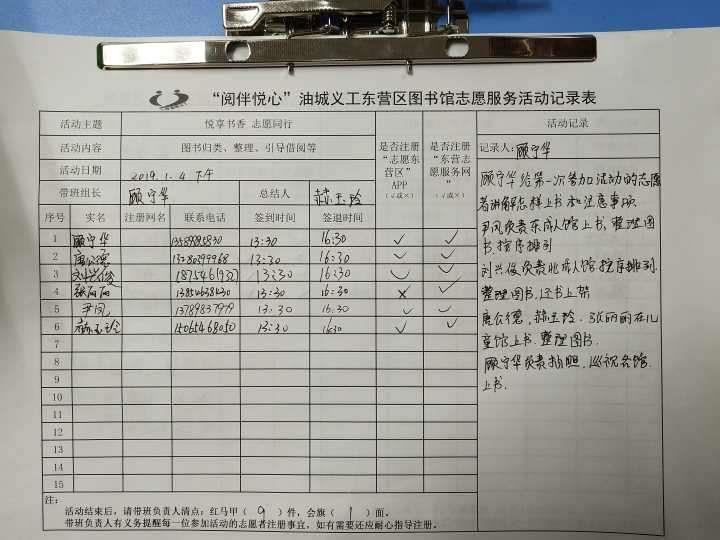 “阅伴悦心”油城义工东营区图书馆志愿服务活动记录表
活动主题 悦享书香 志愿同行
活动内容 图书归类、整理、引导借阅等
活动日期 2019.1.4 下午
带班组长 顾守华 总结人 赫玉玲
是否注册“志愿东营区”APP（√或×）
是否注册“东营志愿服务网”（√或×）
序号 实名 注册网名 联系电话 签到时间 签退时间
1 顾守华 13:30 16:30 √ √
2 唐公德 13:30 16:30 √ √
3 刘兴俊 13:30 16:30 √ √
4 张丽丽 13:30 16:30 × √
5 尹凤 13789837979 13:30 16:30 √ √
6 赫玉玲 15065468050 13:30 16:30 √ √
7
8
9
10
11
12
13
14
15
活动记录
记录人：顾守华
顾守华给第一次参加活动的志愿
者讲解怎样上书和注意事项
尹凤负责东成人馆上书,整理图
书,按序排列
刘兴俊负责北成人馆按序排列.
整理图书,还书上架
唐公德,赫玉玲.张丽丽在儿
童馆上书.整理图书.
顾守华负责拍照.巡视各馆.
上书.
注：
活动结束后，请带班负责人清点：红马甲（ 9 ）件，会旗（ 1 ）面。
带班负责人有义务提醒每一位参加活动的志愿者注册事宜，如有需要还应耐心指导注册。